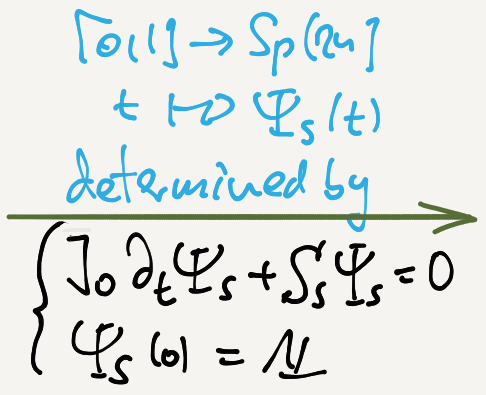 [0,1] → Sp(2n)
t ↦ Ψ_s(t)
determined by
J_0 ∂_t Ψ_s + S_s Ψ_s = 0
Ψ_s(0) = 1